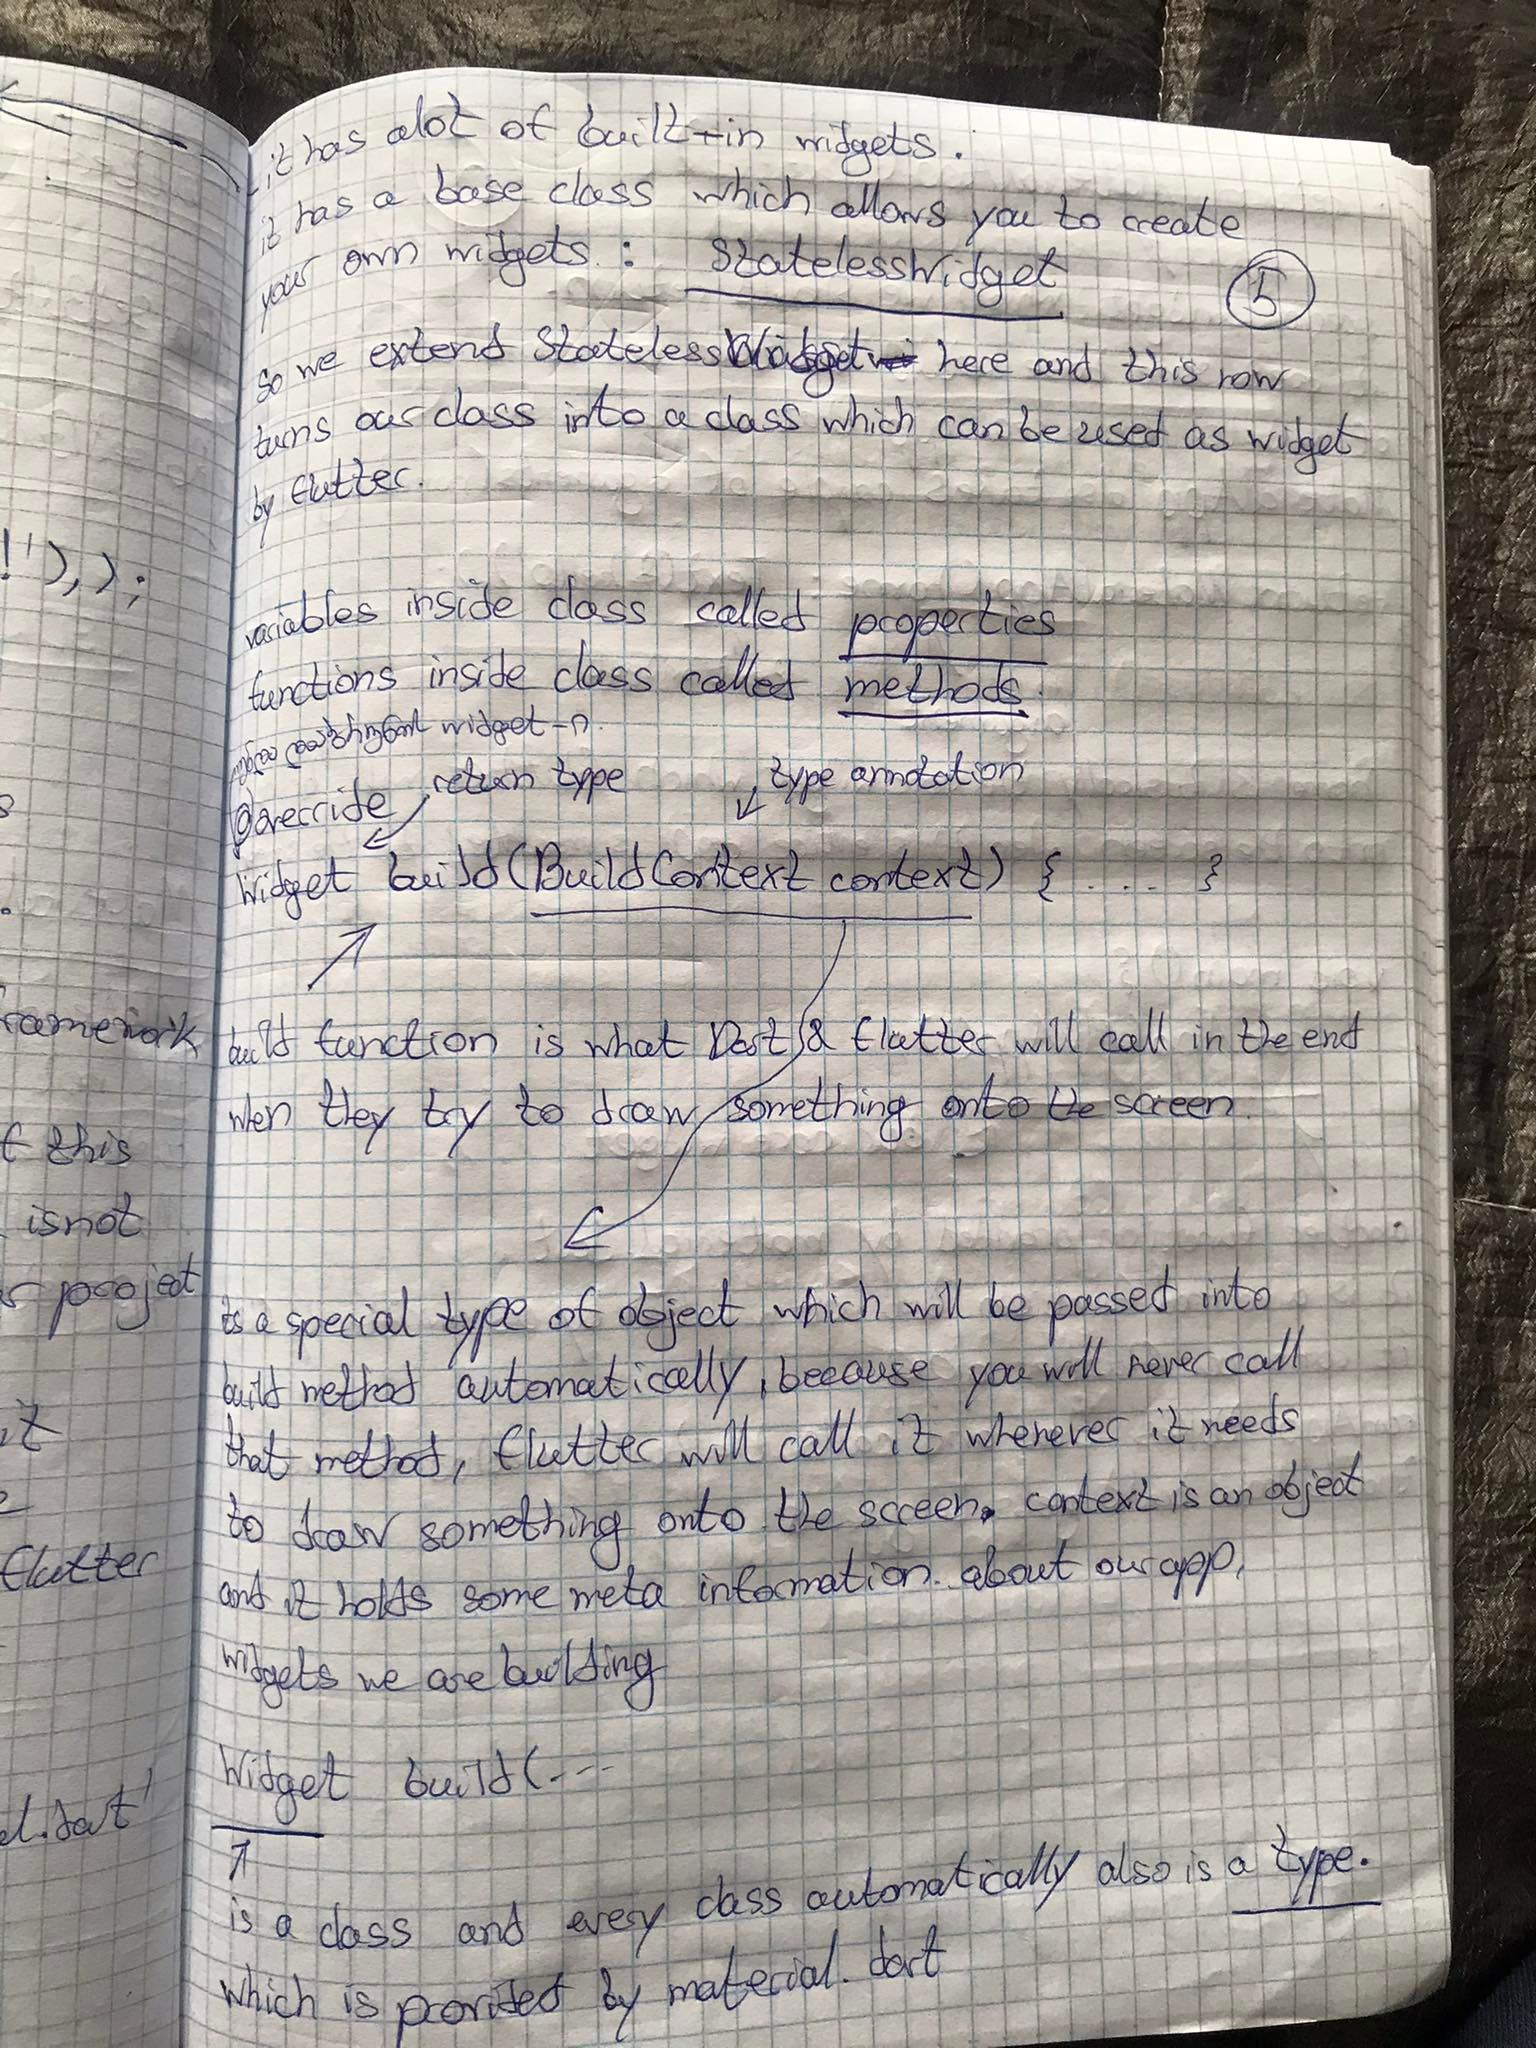 !'),);
s
.
framework
f this
is not
r project
it
flutter
l.dart'
it has alot of built-in widgets.
it has a base class which allows you to create
your own widgets : StatelessWidget
5
so we extend StatelessWidget here and this now
turns our class into a class which can be used as widget
by flutter.
variables inside class called properties
functions inside class called methods.
widget-ი.
return type
type annotation
@override
Widget build(BuildContext context) { .... }
build function is what Dart & flutter will call in the end
when they try to draw something onto the screen
its a special type of object which will be passed into
build method automatically, because you will never call
that method, flutter will call it whenever it needs
to draw something onto the screen. context is an object
and it holds some meta information. about our app,
widgets we are building
Widget build(---
is a class and every class automatically also is a type.
which is provided by material.dart